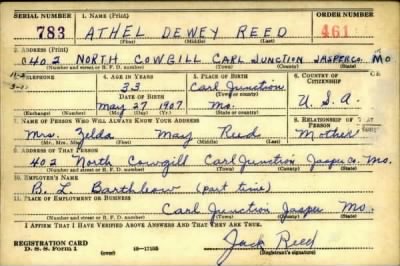 SERIAL NUMBER 1. NAME (Print) ORDER NUMBER
783 ATHEL DEWEY REED 461
(First) (Middle) (Last)
2. ADDRESS (Print)
402 NORTH COWGILL CARL JUNCTION JASPER CO. MO
(Number and street or R. F. D. number) (Town) (County) (State)
3. TELEPHONE 4. AGE IN YEARS 5. PLACE OF BIRTH 6. COUNTRY OF CITIZENSHIP
33 Carl Junction
DATE OF BIRTH (Town or county)
May 27 1907 Mo. U.S.A.
(Exchange) (Number) (Mo.) (Day) (Yr.) (State or country)
7. NAME OF PERSON WHO WILL ALWAYS KNOW YOUR ADDRESS 8. RELATIONSHIP OF THAT PERSON
Mrs. Zelda May Reed Mother
(Mr., Mrs., Miss) (First) (Middle) (Last)
9. ADDRESS OF THAT PERSON
402 North Cowgill Carl Junction Jasper Co. Mo.
(Number and street or R. F. D. number) (Town) (County) (State)
10. EMPLOYER'S NAME
B. L. Barthlow (part time)
11. PLACE OF EMPLOYMENT OR BUSINESS
Carl Junction Jasper Mo.
(Number and street or R. F. D. number) (Town) (County) (State)
I AFFIRM THAT I HAVE VERIFIED ABOVE ANSWERS AND THAT THEY ARE TRUE.
REGISTRATION CARD
D. S. S. Form 1 16-17105 Jack Reed
(Registrant's signature)